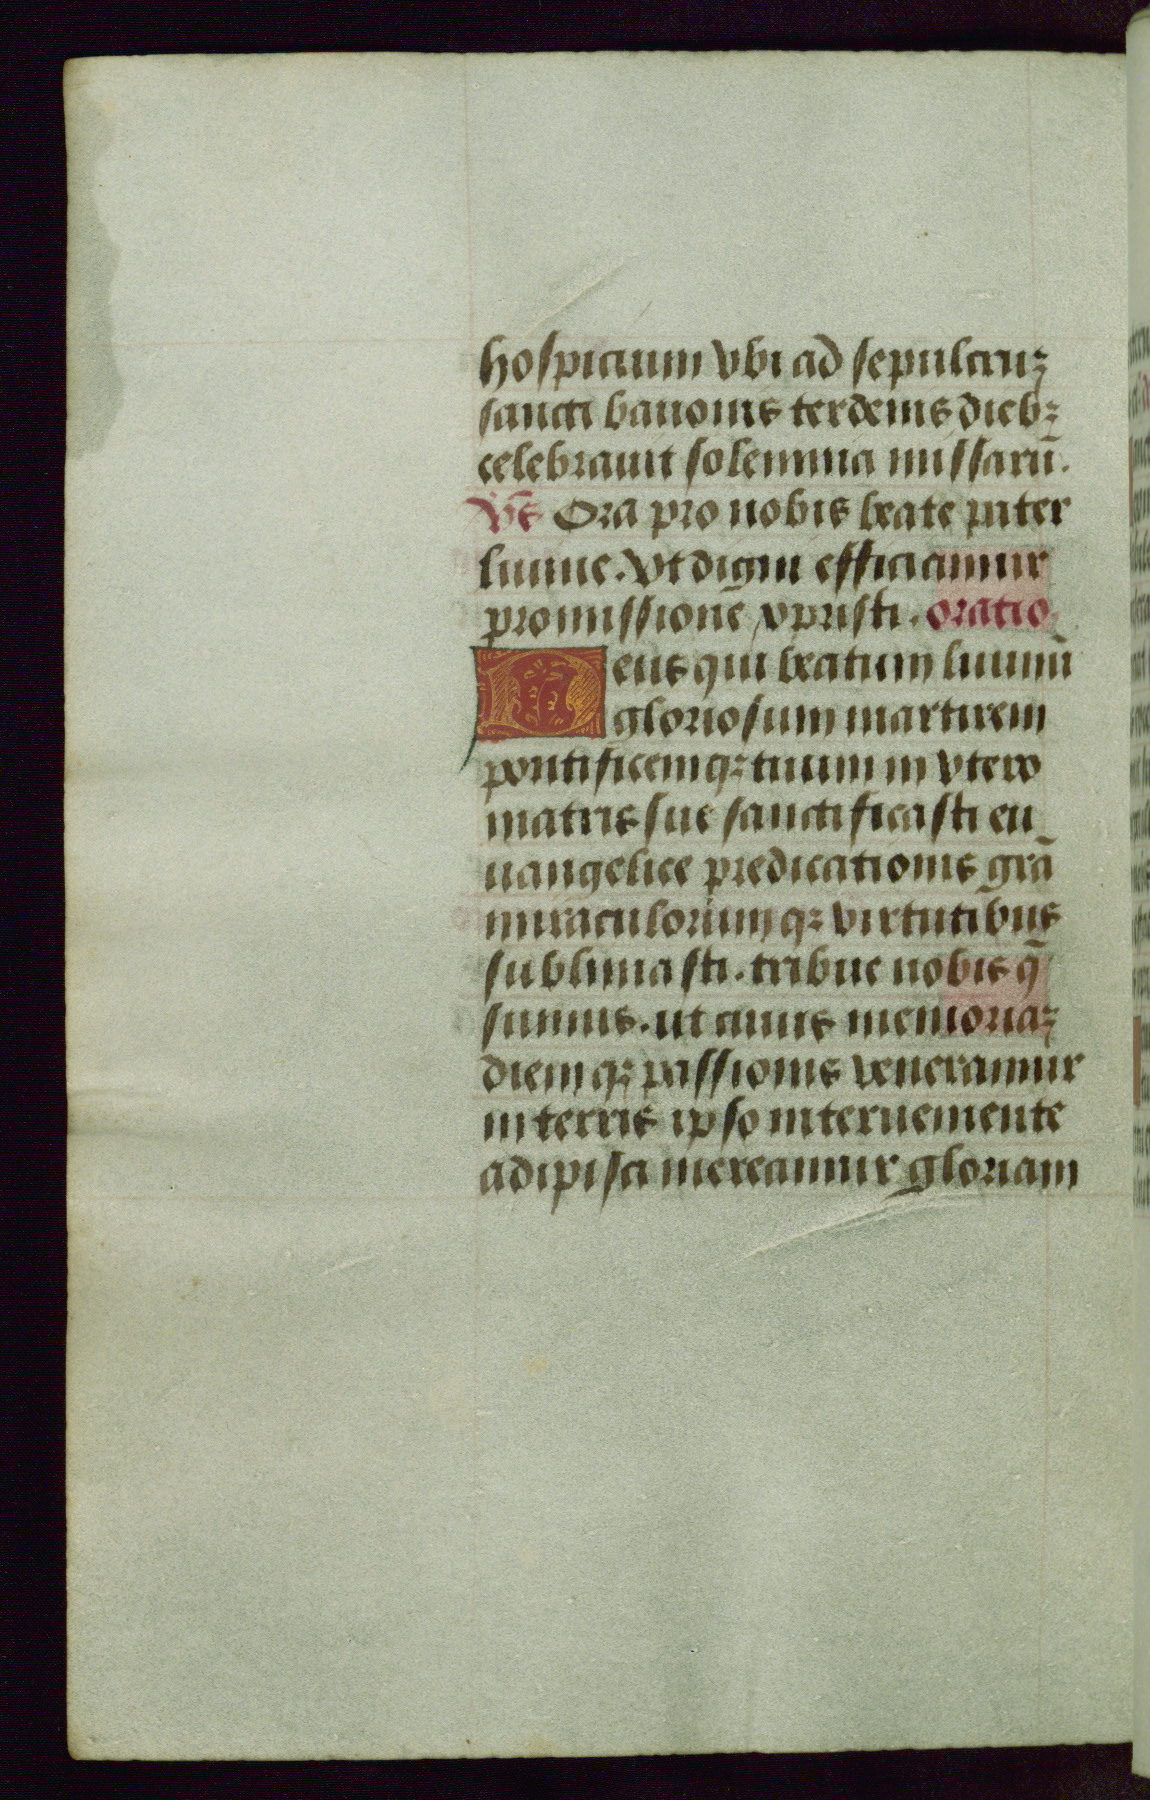 hospicium vbi ad sepulcruꝫ
sancti bauonis terdenis diebꝫ
celebrauit solemnia missarū.
Vs Ora pro nobis beate pater
liuine. Vt digni efficiamur
promissionē xpristi. oratio
Deus qui beatum liuinū
gloriosum martirem
pontificemqꝫ tuum in vtero
matris sue sanctificasti eu
uangelice predicationis grā
miraculorumqꝫ virtutibus
sublimasti. tribue nobis q̄
sumus. ut cuius memoriaꝫ
diemqꝫ passionis veneramur
in terris ipso interueniente
adipisci mereamur gloriam